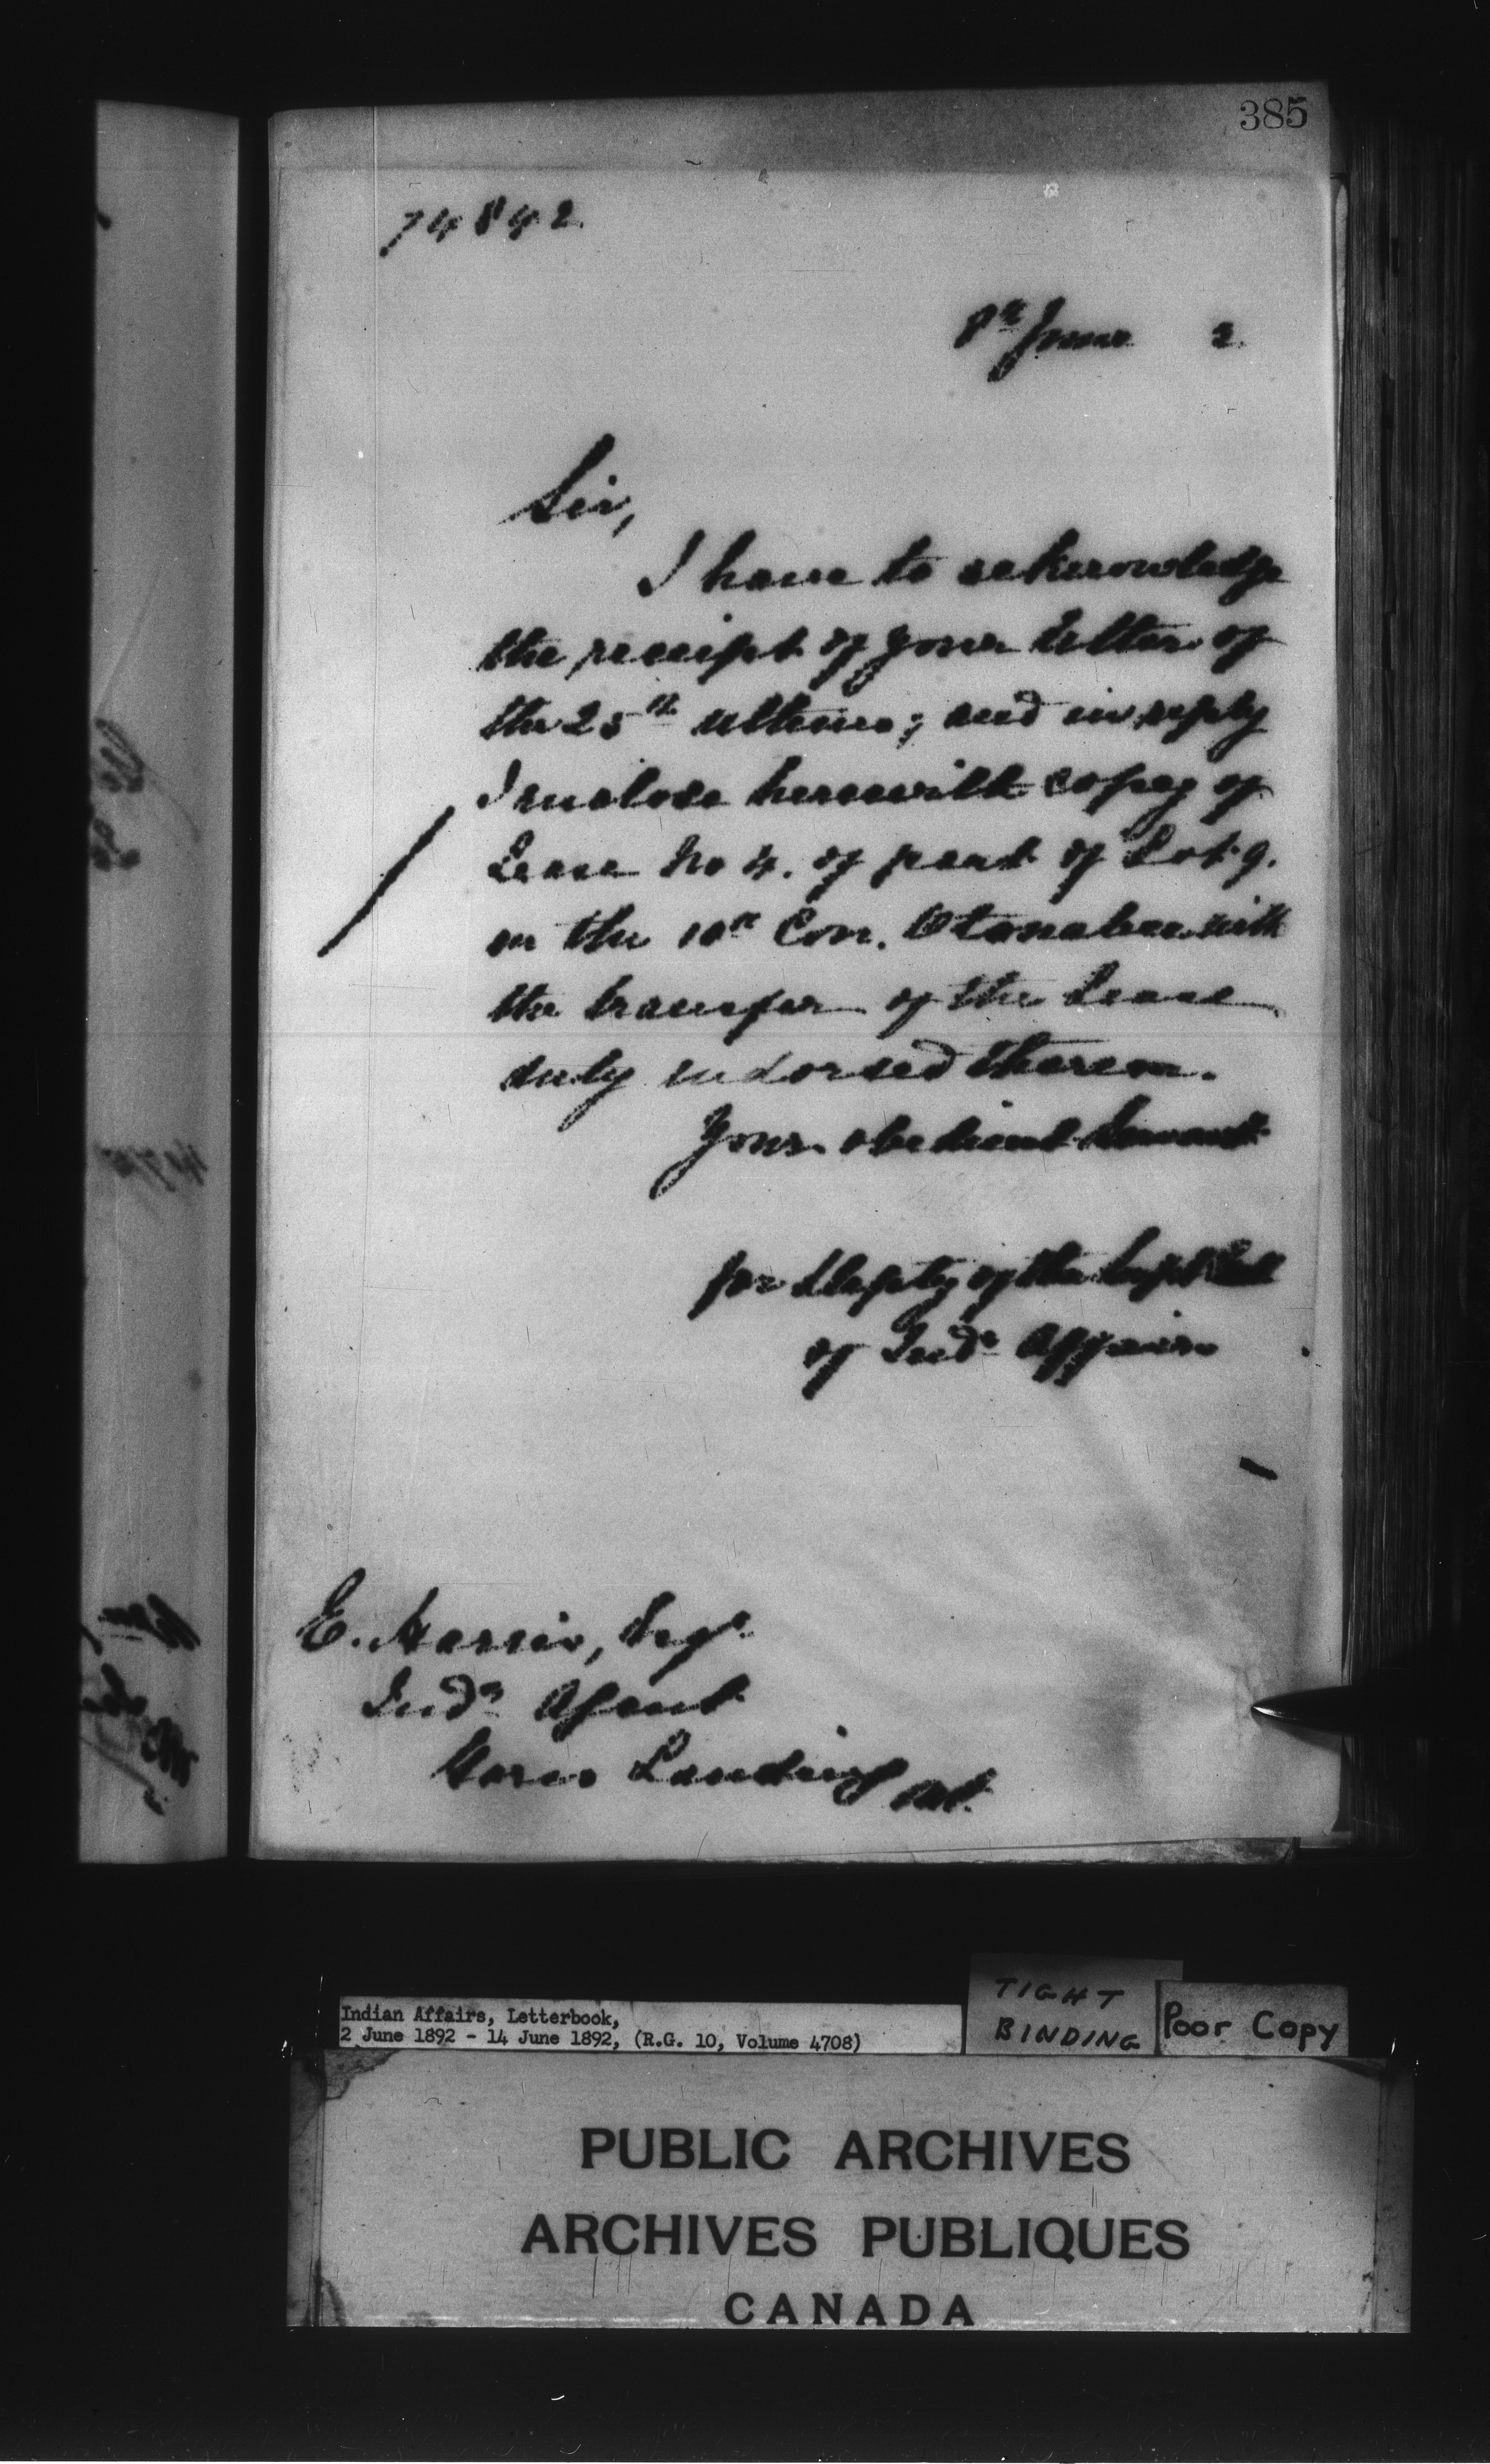 385
74842
8th June 2
Sir,
I have to acknowledge
the receipt of your letter of
the 25th ultimo; and in reply
I inclose herewith copy of
Lease No 4. of part of Lot 9.
in the 10th Con. Otonabee with
the transfer of the Lease
duly indorsed thereon.
Your obedient Servant
for Deputy of the Supt Genl
of Indn Affairs
E. Harris, Esqr
Indn Agent
Gores Landing Ont.
Indian Affairs, Letterbook,
2 June 1892 - 14 June 1892, (R.G. 10, Volume 4708)
TIGHT
BINDING
Poor Copy
PUBLIC ARCHIVES
ARCHIVES PUBLIQUES
CANADA